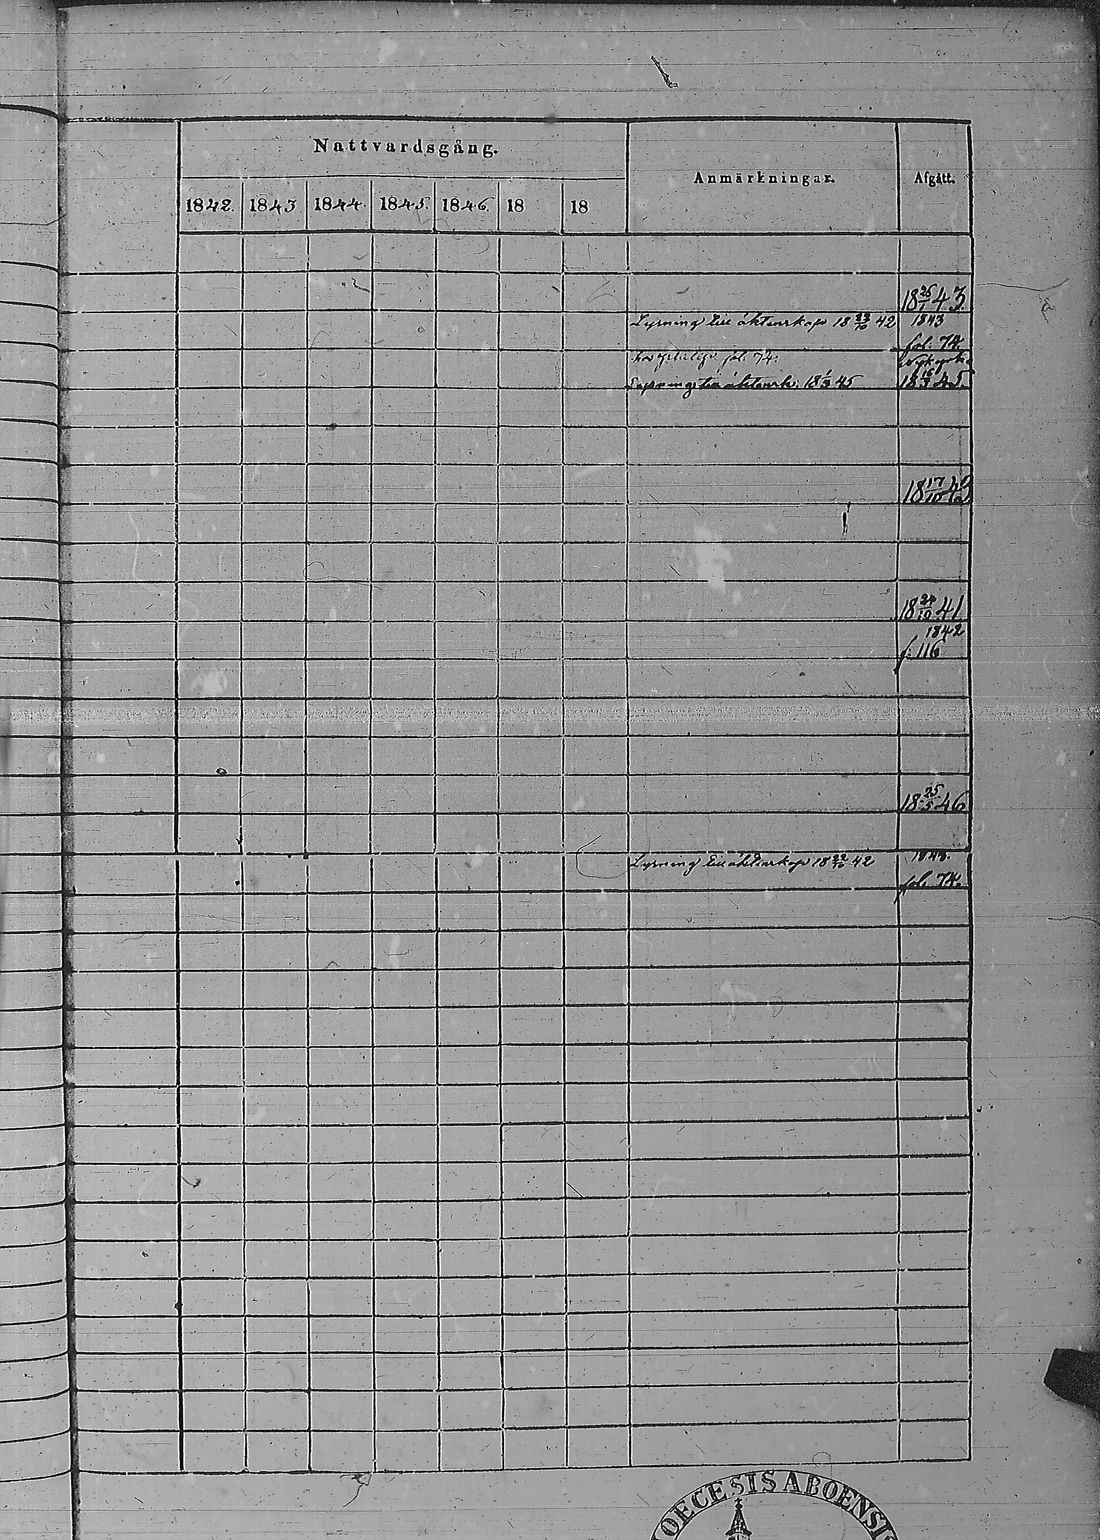 Nattvardsgång.
Anmärkningar. Afgått.
1842. 1843 1844 1845 1846. 18 18
18 25/1 43.
Lysning till äktenskap 18 23/10 42 1843
fol. 74.
fol. 74.
Lysning till äktensk. 18 1/3 45
18 17/10 43
18 24/10 41
1842
f. 116
18 25/5 46
Lysning till äktenskap 18 23/10 42 1843.
fol. 74.
OECESIS ABOENSI